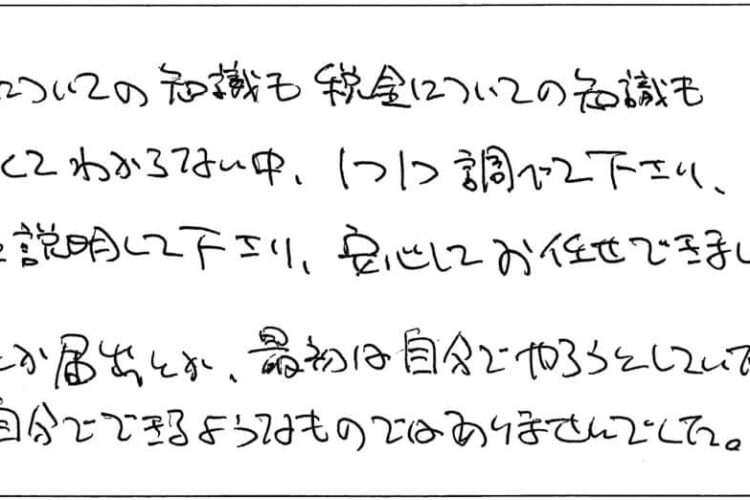 についての知識も税金についての知識も
くてわからない中、1つ1つ調べて下さり、
説明して下さり、安心してお任せできまし
とか届出とか、最初は自分でやろうとしていて
自分でできるようなものではありませんでした。